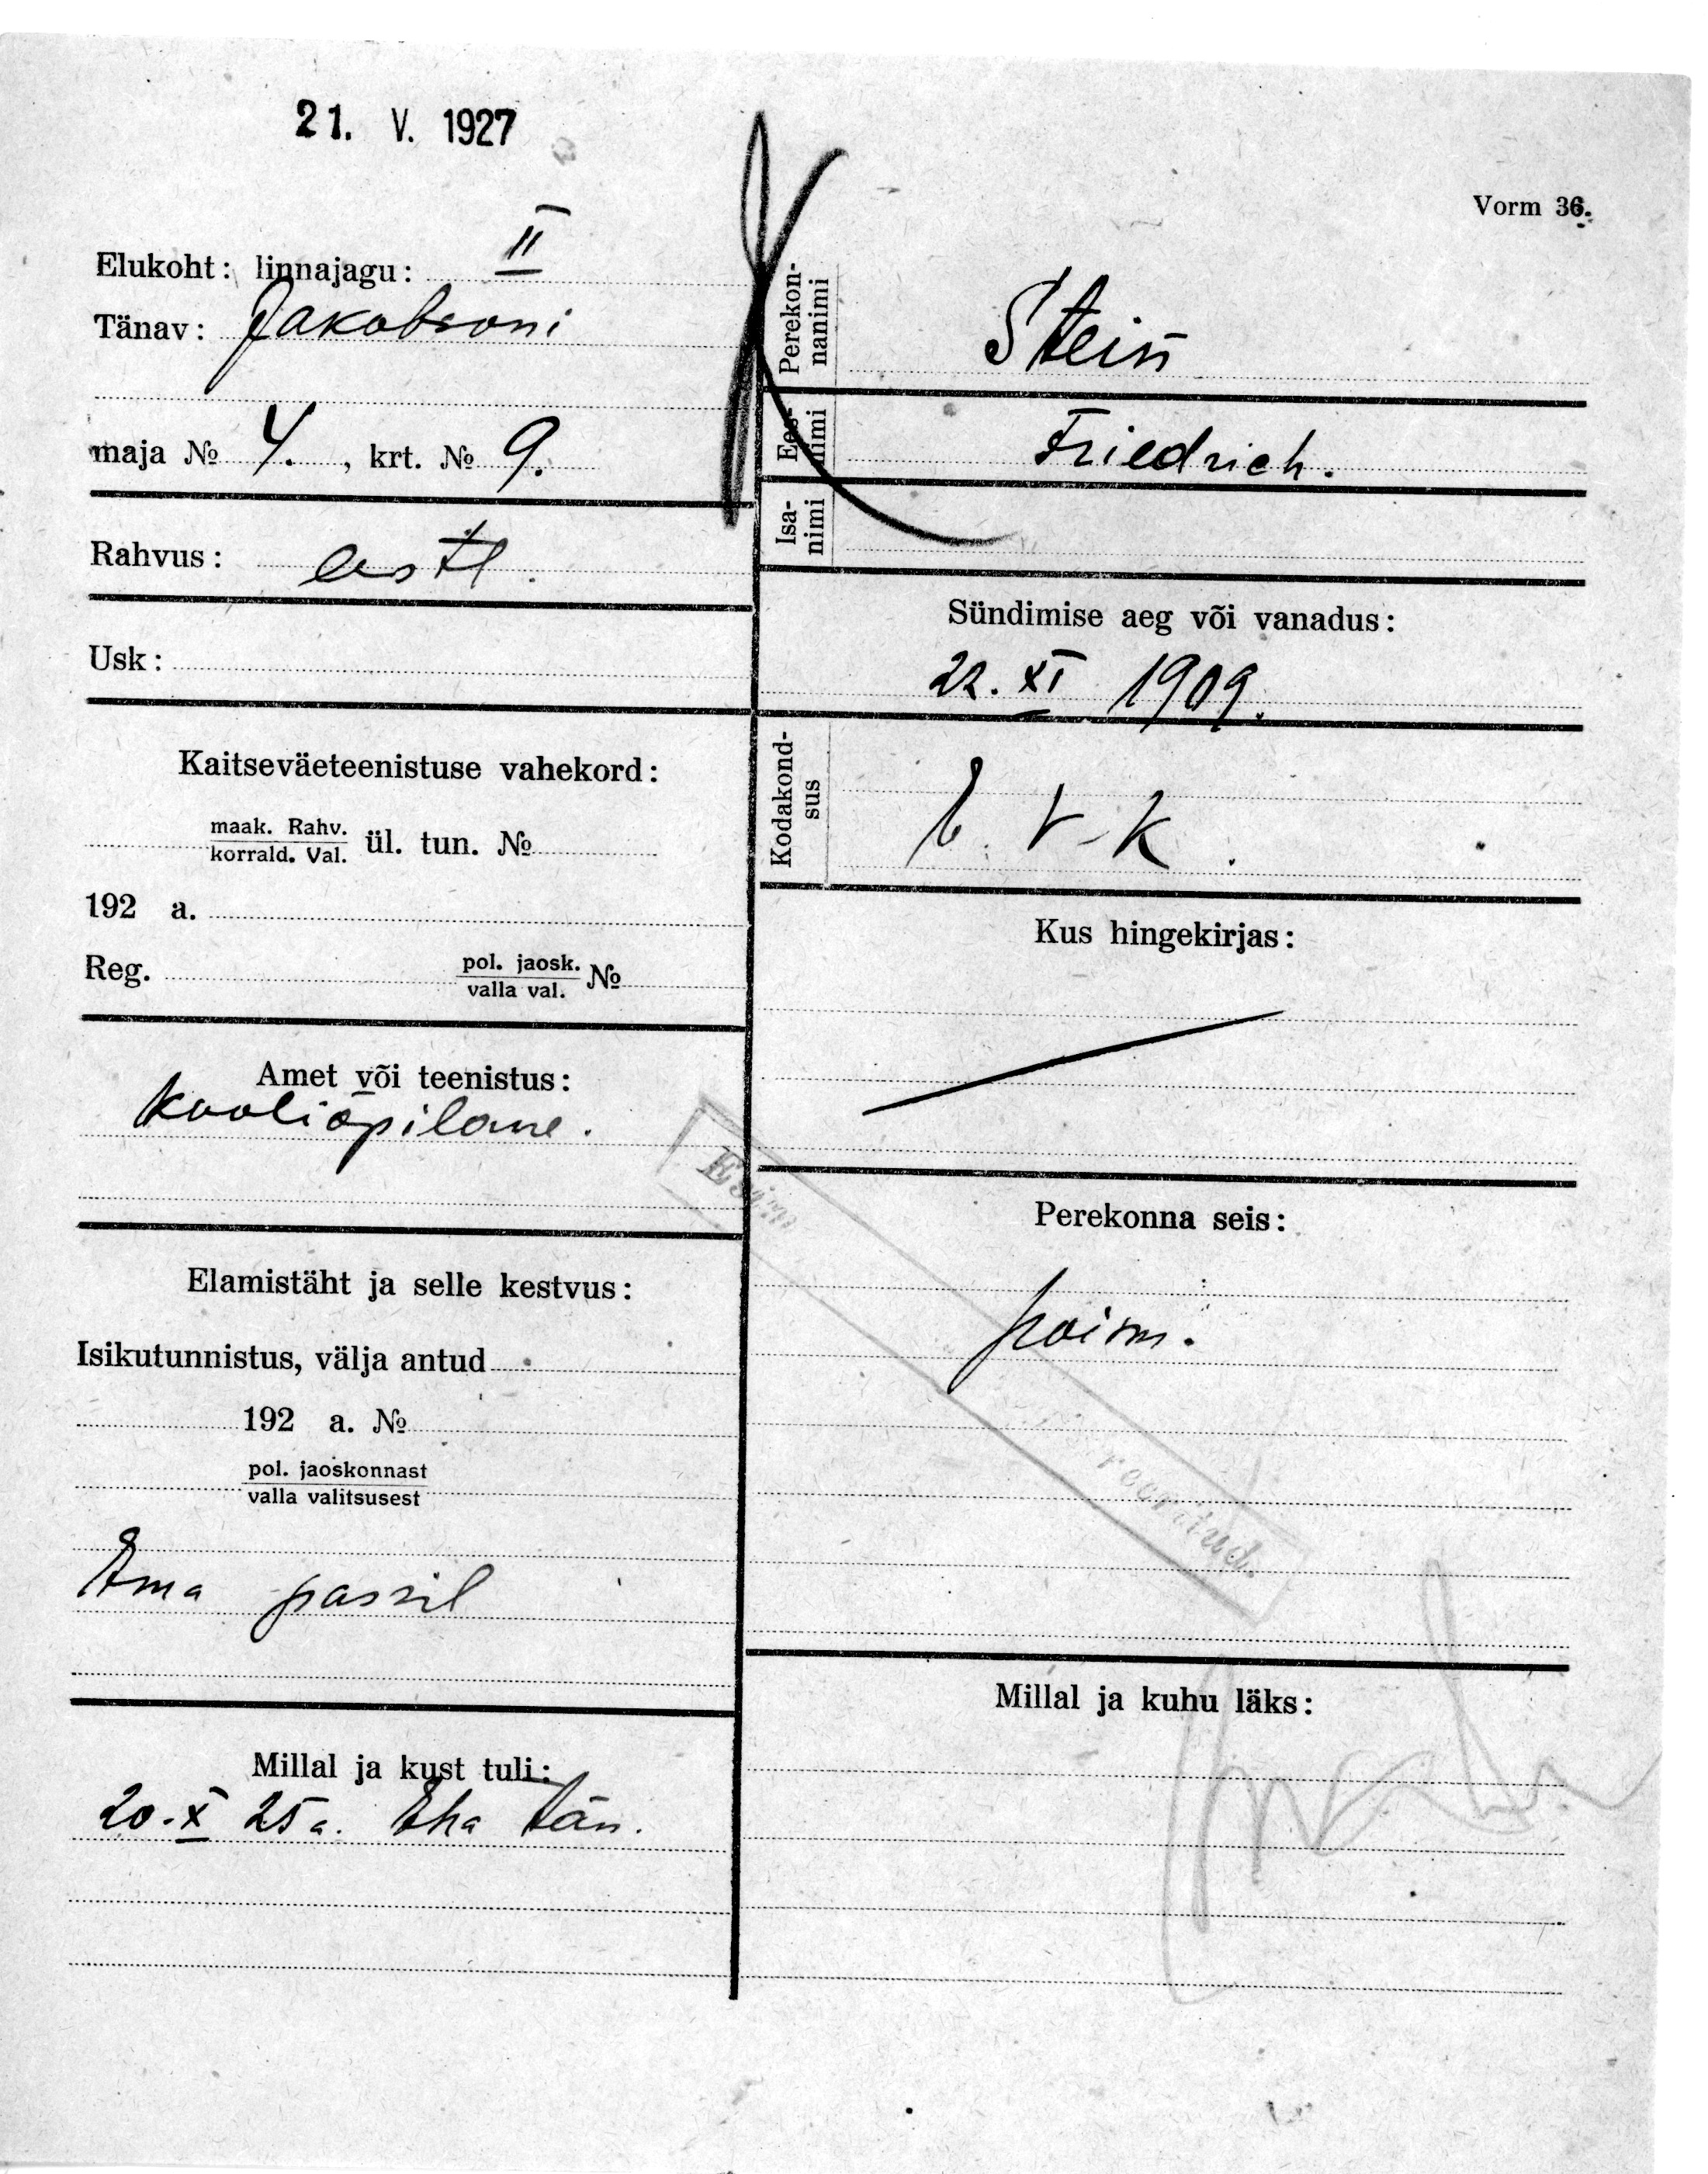 21. V. 1927
Vorm 36.
Elukoht: linnajagu: II
Tänav: Jakobsoni
maja № 4. , krt. № 9.
Rahvus: eestl.
Usk:
Kaitseväeteenistuse vahekord:
maak. Rahv.
korrald. Val. ül. tun. №
192 a.
Reg. pol. jaosk.
valla val. №
Amet või teenistus:
kooliõpilane.
Elamistäht ja selle kestvus:
Isikutunnistus, välja antud
192 a. №
pol. jaoskonnast
valla valitsusest
Ema passil
Millal ja kust tuli:
20.X 25 a. Eha tän.
Perekon-
nanimi Stein
Ees-
nimi Friedrich.
Isa-
nimi
Sündimise aeg või vanadus:
22. XI 1909.
Kodakond-
sus E. V. K.
Kus hingekirjas:
Perekonna seis:
poism.
Millal ja kuhu läks: